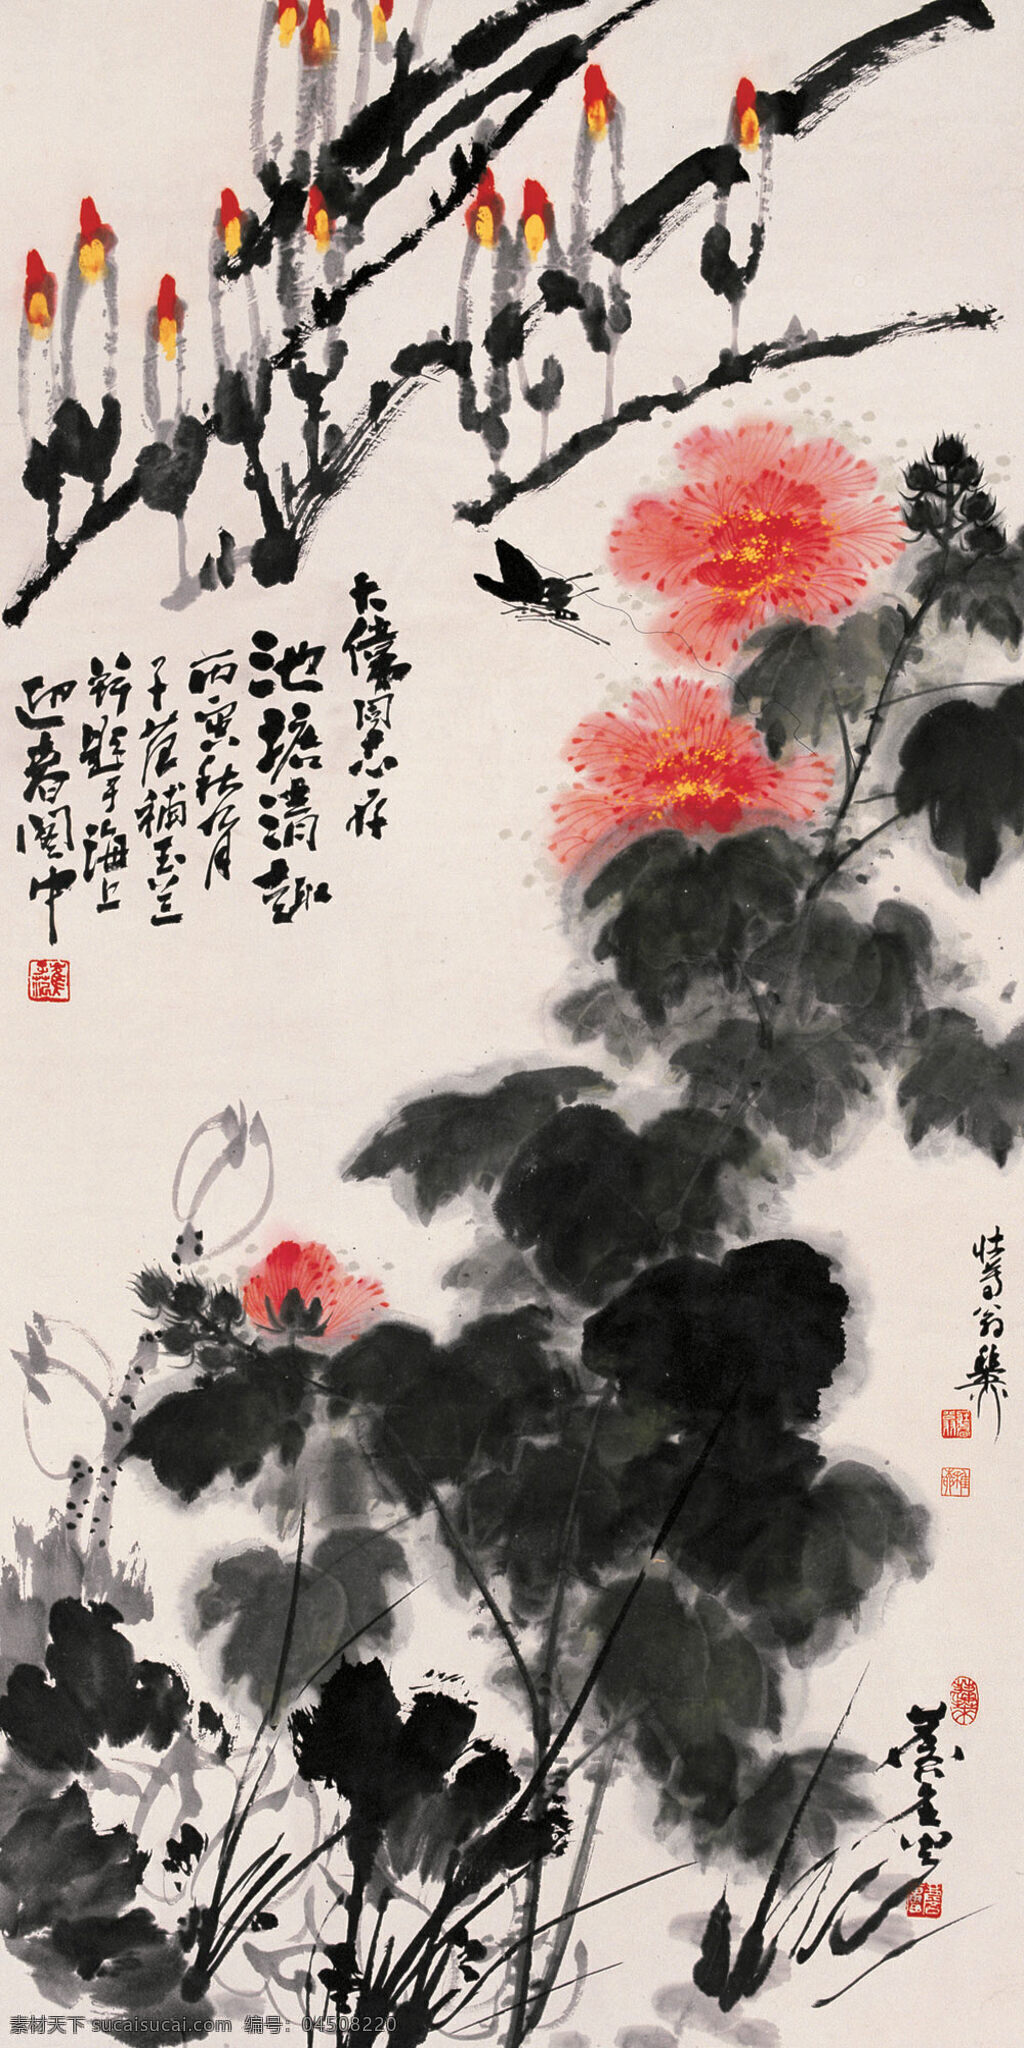 大伟同志存
池塘清趣
丙寅秋九月
子范補玉兰
并题于海上
迎春阁中
壮暮翁稚
養盦
素材天下 sucaisucai.com 编号：04508220